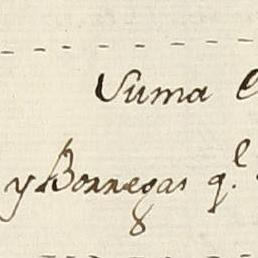 Suma
y Borregas q.^e